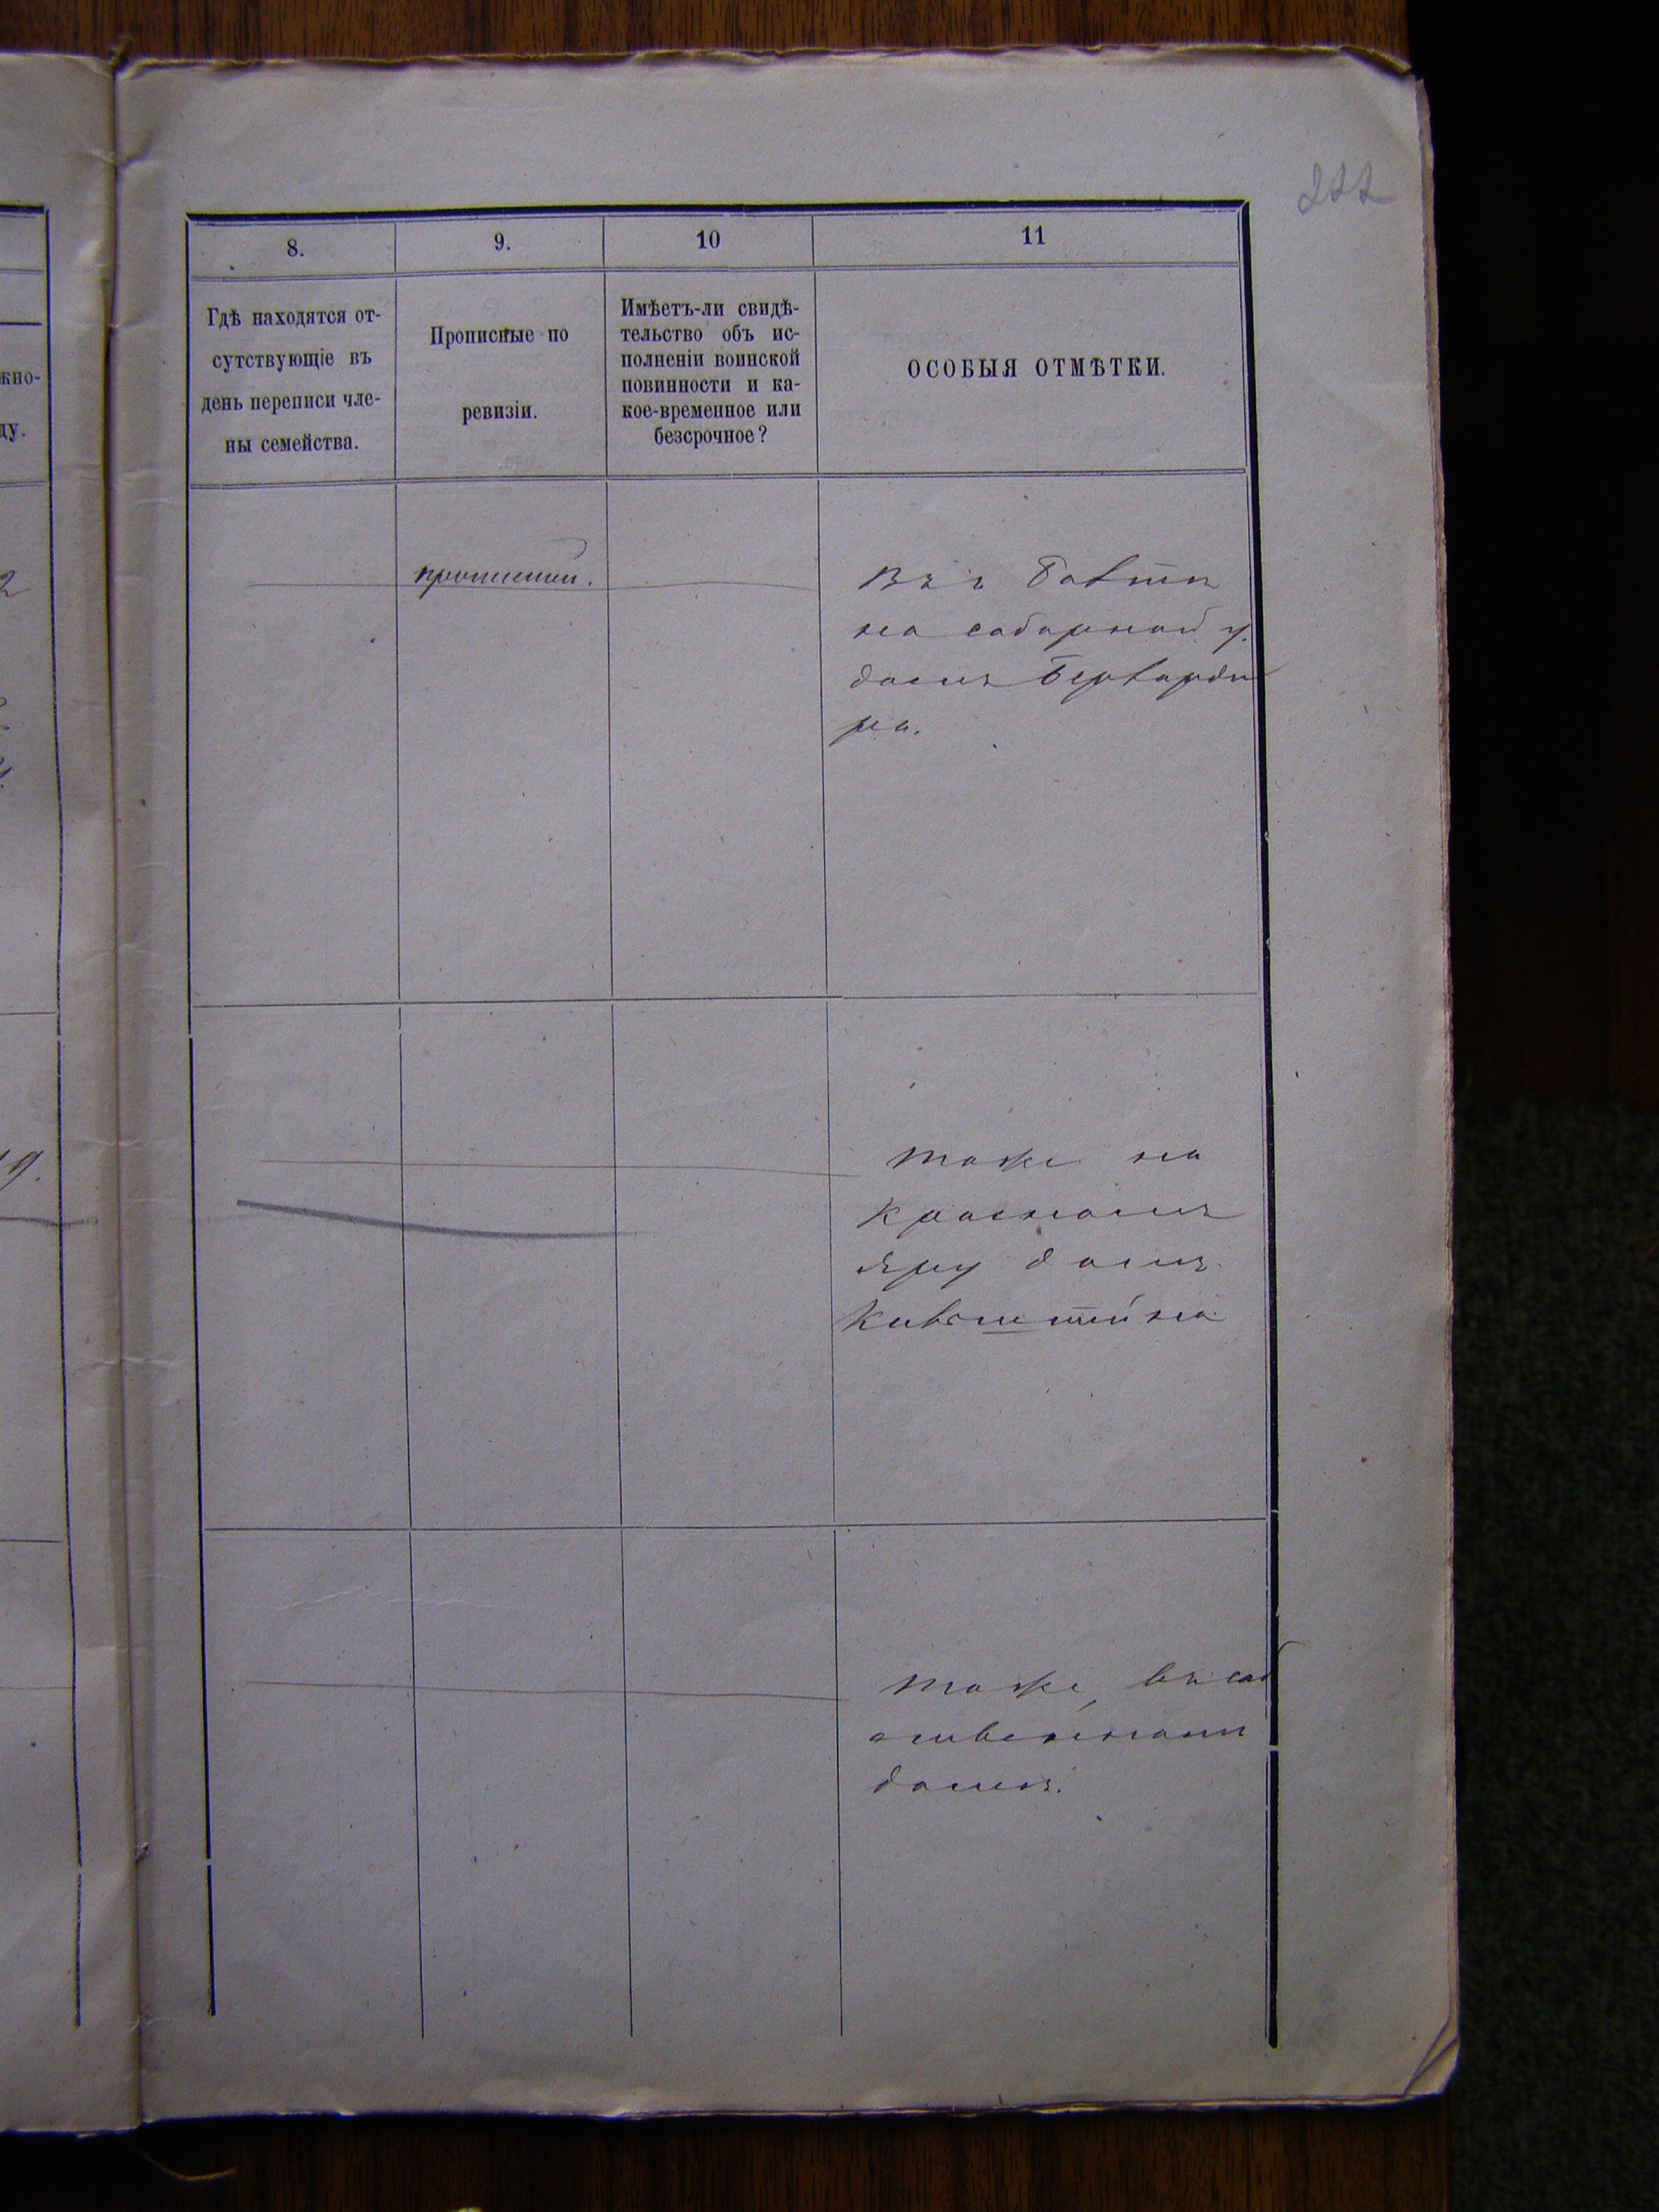 222
8.
9.
10
11
Гдѣ находятся от-
сутствующіе въ
день переписи чле-
ны семейства.
Прописные по
ревизіи.
Имѣетъ-ли свидѣ-
тельство объ ис-
полненіи воинской
повинности и ка-
кое-временное или
безсрочное?
ОСОБЫЯ ОТМѢТКИ.
жно-
ду.
2
19.
Въ г
на соборной у.
домъ
тоже на
Красномъ
яру домъ
тоже, въ соб
ственномъ
домѣ.